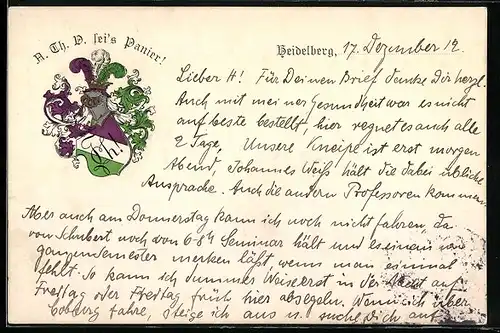 A. Th. V. sei's Panier!
Heidelberg, 17. Dezember 12.
Lieber H! Für Deinen Brief danke Dir herzl.
Auch mit meiner Gesundheit war es nicht
aufs beste bestellt, hier regnet es auch alle
2 Tage. Unsere Kneipe ist erst morgen
Abend, Johannes Weiß hält die dabei übliche
Ansprache. Auch die andern Professoren kommen.
Aber auch am Donnerstag kann ich noch nicht fahren, da
von Schubert noch von 6-8h Seminar hält und es einen
ganzen Semester merken läßt, wenn man es einmal
fehlt. So kann ich dummer Weise erst in der Nacht auf
Freitag oder Freitag früh hier absegeln. Wenn ich über
Coburg fahre, steige ich aus u. suche Dich auf